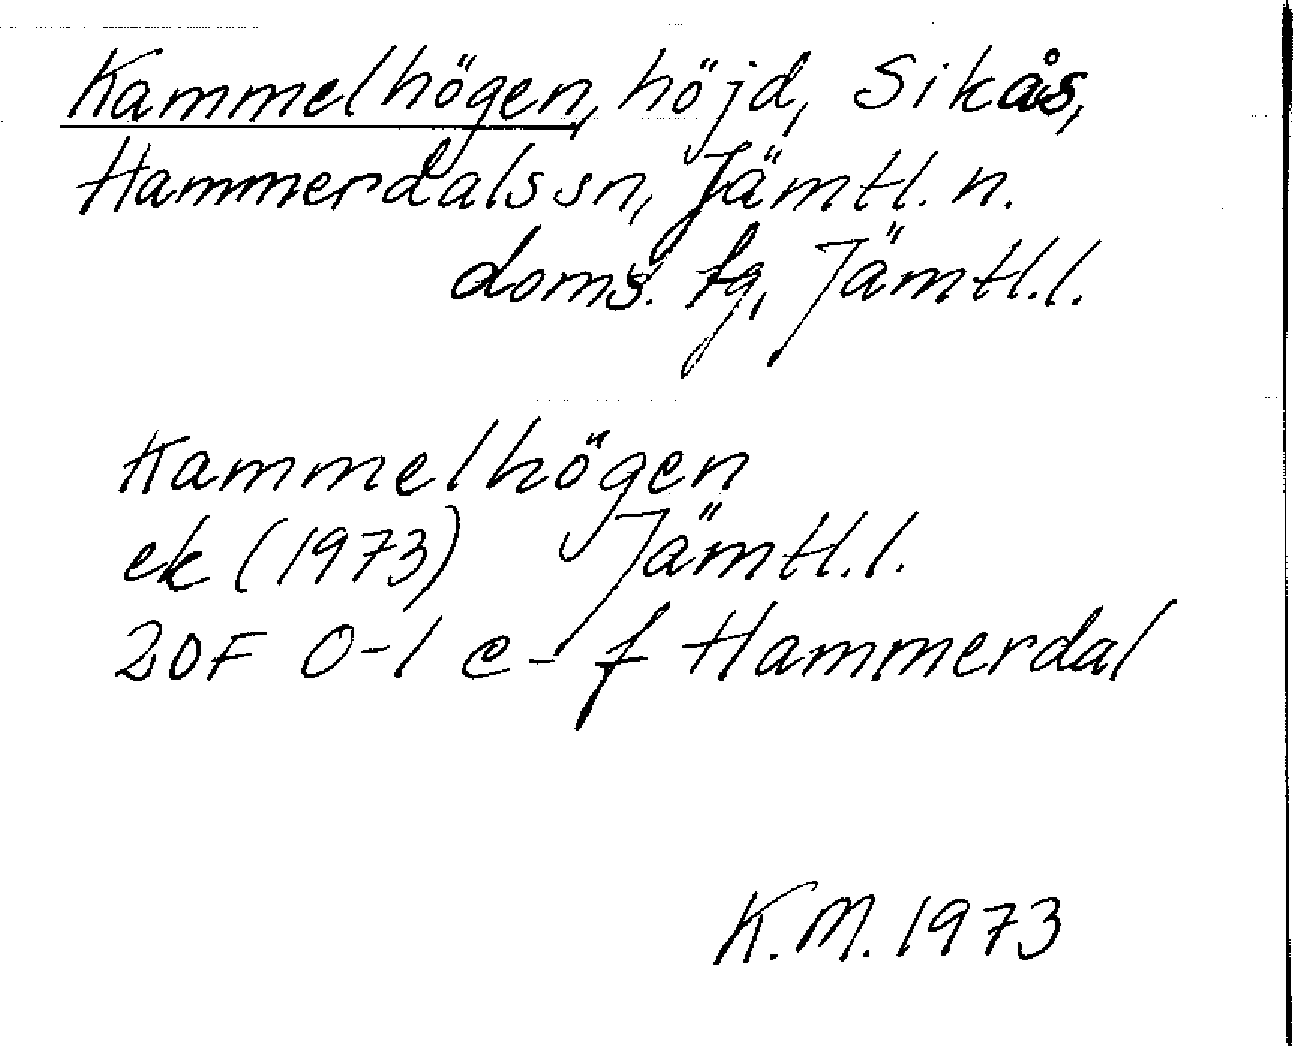 Kammelhögen, höjd, Sikås,
Hammerdals sn, Jämtl. n.
doms. tg, Jämtl. l.
Kammelhögen
ek (1973) Jämtl. l.
20F 0-1 e-f Hammerdal
K.M. 1973